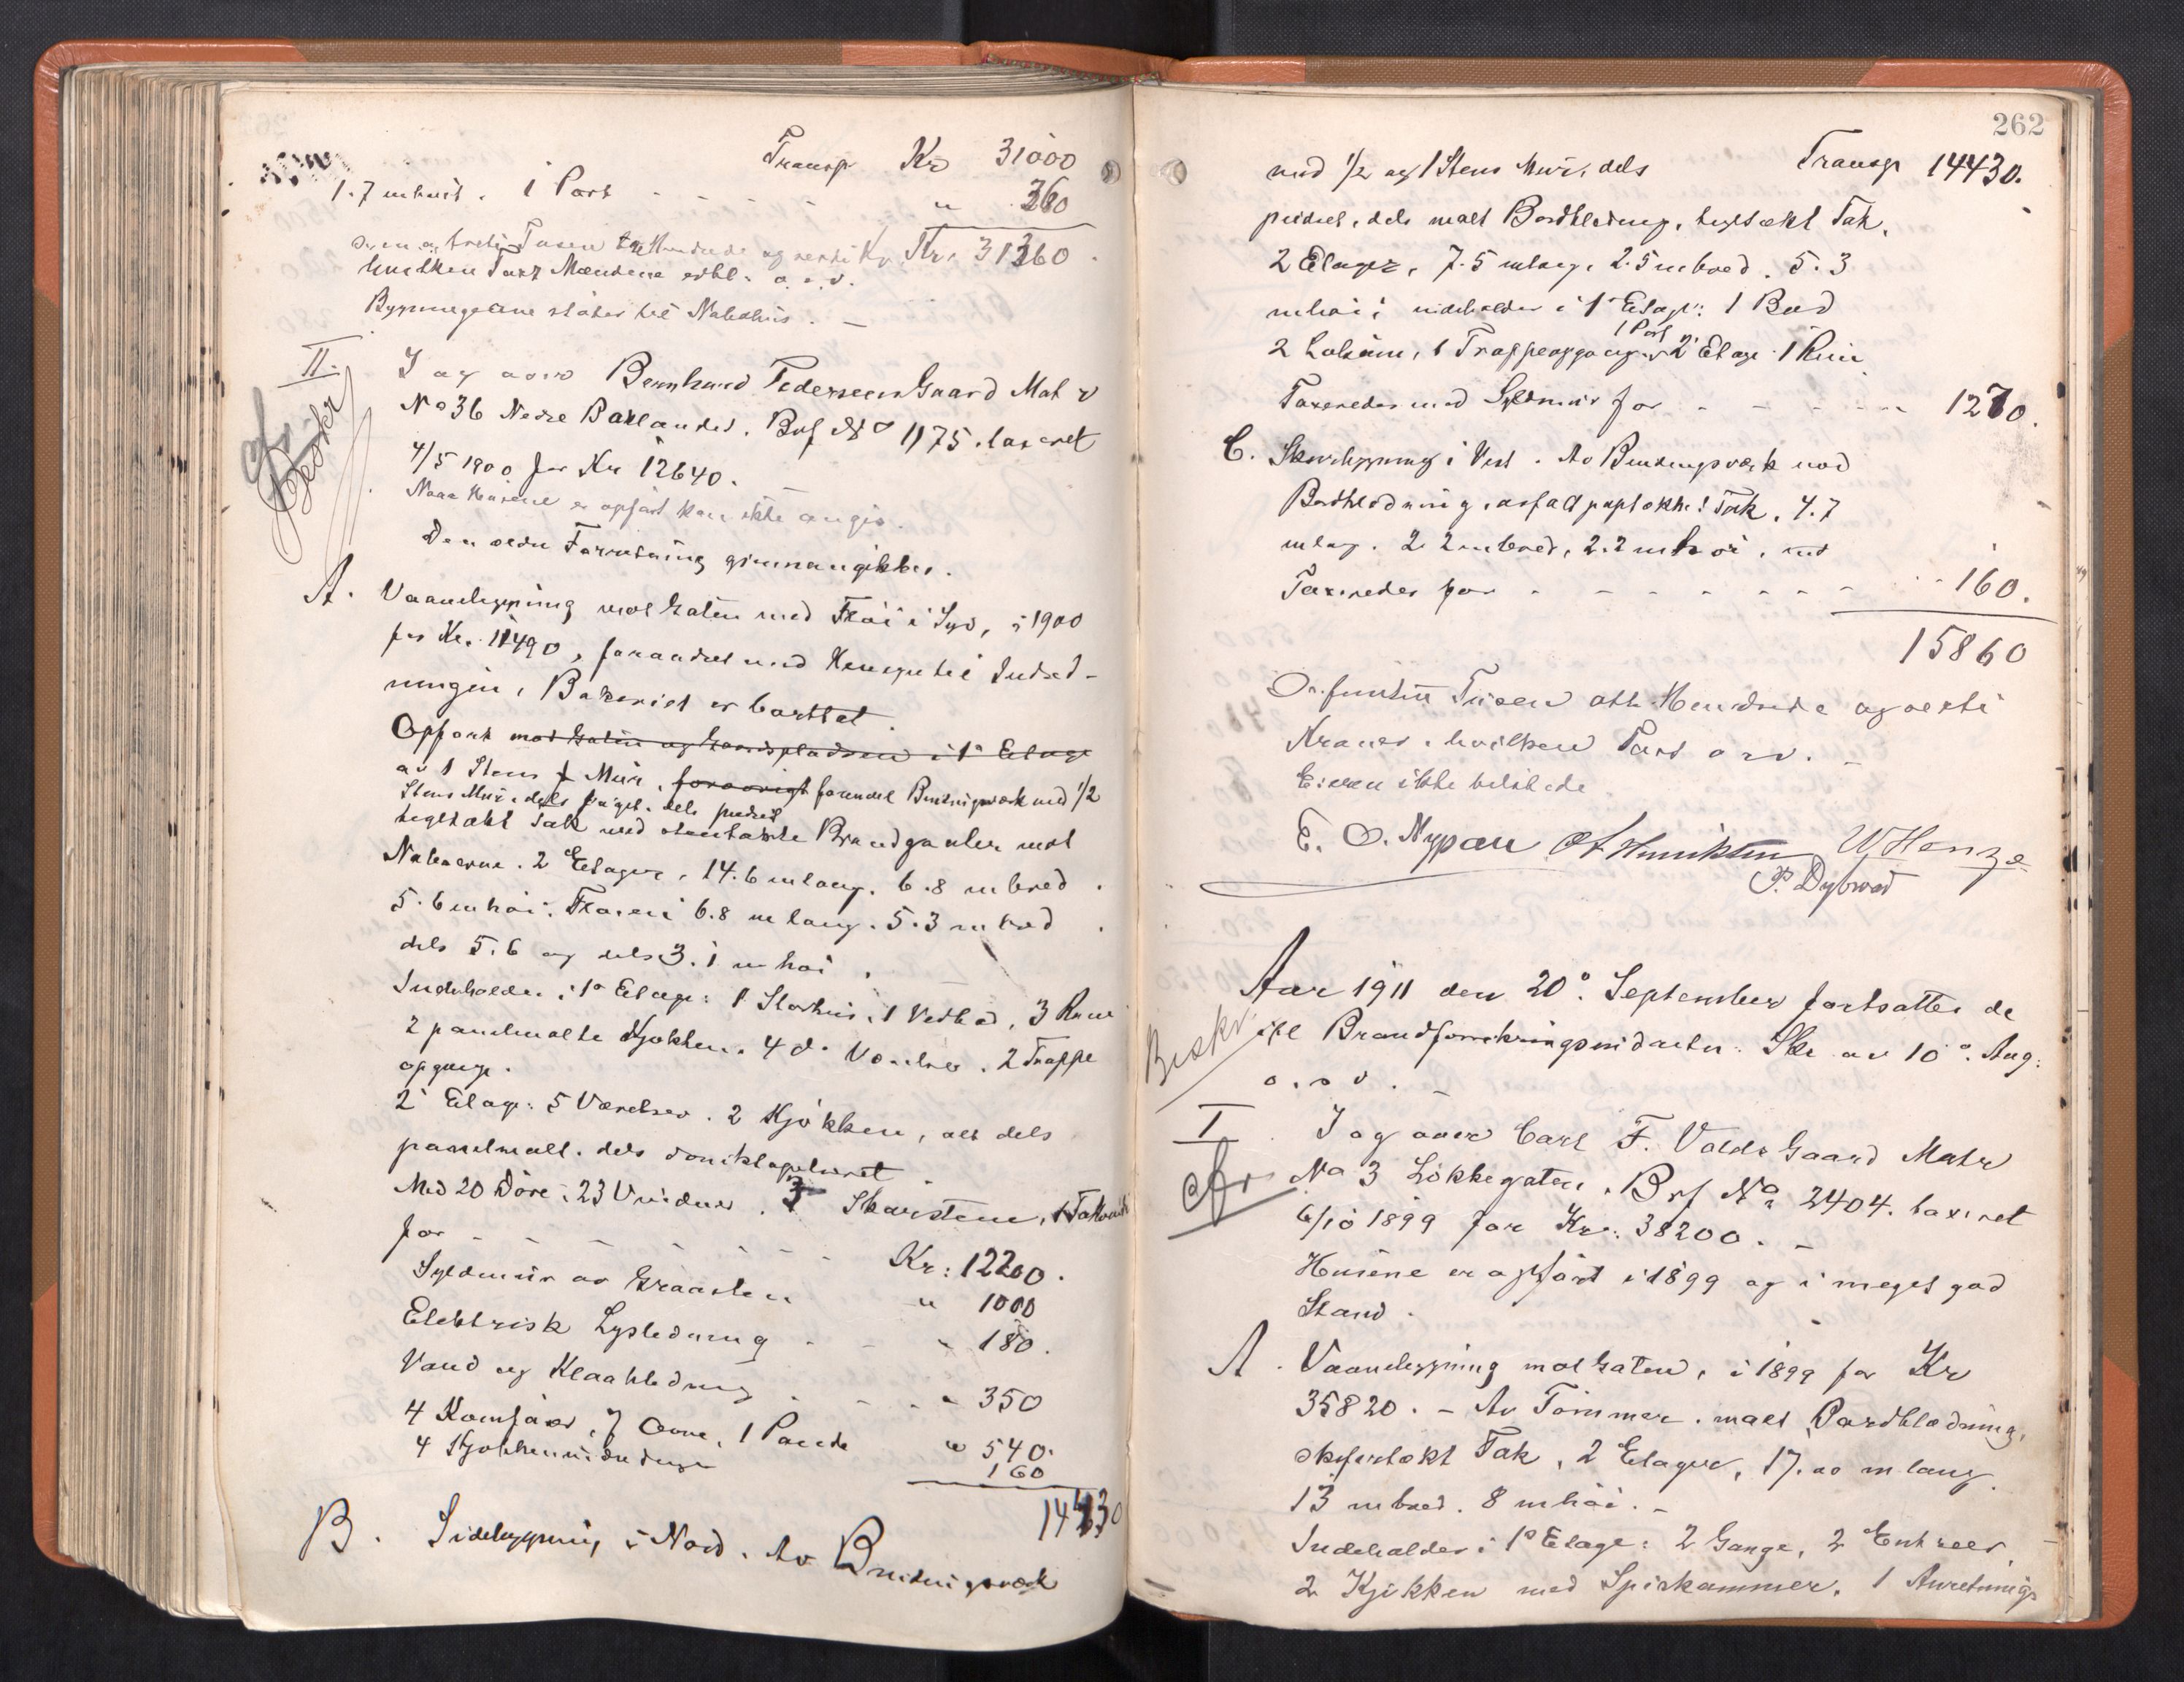 Transp Kr 31000
1.7 m høit. 1 Port - - - - " 360
een og treti Tusen tre Hundrede og sexti Kr. Kr. 31360.
hvilken Taxt Mændene edbl. o.s.v.
Bygningerne støter til Nabohus. -
II. I og over Bernhard Pedersens Gaard Matr
No 36 Nedre Baklandet. Brf No 1175. taxeret
4/5 1900 for Kr 12640. -
Naar Husene er opført kan ikke angis.
Den ældre Forretning gjennemgikkes.
cfr
Beskr
A. Vaaningsbygning mot Gaten med Fløi i Syd, i 1900
for Kr. 11490, forandret med Hensyn til Indred-
ningen, Bakeriet er borttat.
Opført mot Gaten og Gaardspladsen i 1ste Etage
av 1 Stens Mur, forøvrigt forendel Bindingsverk med 1/2
Stens Mur, dels paget. dels pudset
teglstækt Tak med Brandgavler mot
Naboerne. 2 Etager, 14.6 m lang. 6.8 m bred.
5.6 m høi. Fløien 6.8 m lang. 5.3 m bred
dels 5.6 og dels 3.1 m høi.
Indeholder i 1ste Etage: 1 Vedbod, 3 Rum
2 panelmalte Kjøkken. 4 do Værelser. 2 Trappe
opgange.
2 Etage: 5 Værelser. 2 Kjøkken, alt dels
panelmalt. dels
Med 20 Døre, 23 Vinduer. 3 Skorstene, 1
for - - - - - - - Kr: 12200.
Syldmur av Graasten " 1000
Elektrisk Lysledning - - - 180.
Vand og Kloakledning - - - - 350
4 Komfører, 7 Ovne, 1 Pande " 540.
4 Kjøkkenindredninger 160
14430
B. Sidebygning i Nord. Av Bindingsverk
262
med 1/2 og 1 Stens Mur, dels Transp 14430.
pudset, dels malt Bordklædning, teglstækt Tak,
2 Etager, 7.5 m lang, 2.5 m bred. 5.3
m høi; indeholder i 1ste Etage: 1 Bod
1 Port
2 Lokum, 1 Trappeopgang. 2 Etage 1 Rum
Taxeredes med Syldmur for - - - - - 1270.
C. Skurbygning i Vest. Av Bindingsverk med
Bordklædning, asfaltpaptækket Tak, 4.7
m lang. 2.2 m bred, 2.2 m høi,
Taxeredes for - - - - - - - - 160.
15860
Er femten Tusen otte Hundrede og sexti
Kroner. hvilken Taxt o.s.v. -
Eieren ikke tilstede
E. O. Nypan O Henriksen W Henze
P. Dybwad
Aar 1911 den 20de September fortsattes de
Beskr. ifl Brandforsikringsvidtægter. Skr. av 10de Aug:
o.s.v. -
I I og over Carl F. Volds Gaard Matr
cfr No 3 Løkkegaten. Brf No 2404. taxeret
6/10 1899 for Kr: 38200. -
Husene er opført i 1899 og i meget god
Stand.
A. Vaaningsbygning mot Gaten, i 1899 for Kr
35820. - Av Tømmer. malt Bordklædning,
skifertækt Tak, 2 Etager, 17.00 m lang.
13 m bred. 8 m høi. -
Indeholder i 1ste Etage: 2 Gange, 2 Entreer
2 Kjøkken med Spiskammer. 1 Anretnings